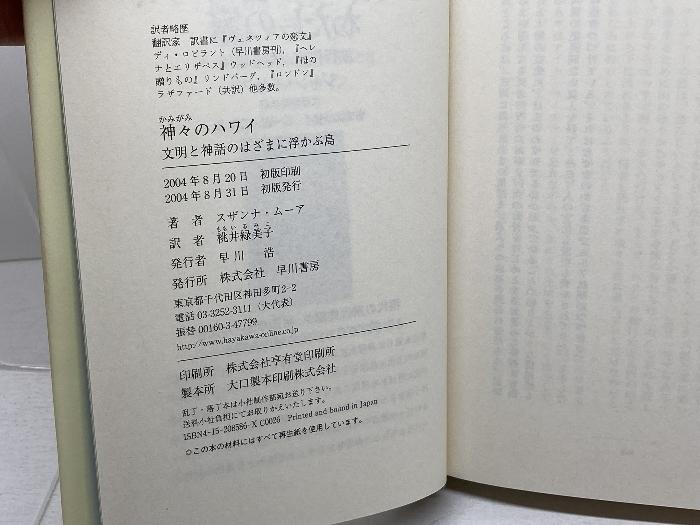 訳者略歴
翻訳家 訳書に『ヴェネツィアの恋文』
ディ・ロビラント（早川書房刊），『ヘレ
ナとエリザベス』ウッドヘッド，『母の
贈りもの』リンドバーグ，『ロンドン』
ラザファード（共訳）他多数。
かみがみ
神々のハワイ
文明と神話のはざまに浮かぶ島
2004年8月20日 初版印刷
2004年8月31日 初版発行
著者 スザンナ・ムーア
ももいるみこ
訳者 桃井緑美子
発行者 早川 浩
発行所 株式会社 早川書房
東京都千代田区神田多町2-2
電話 03-3252-3111（大代表）
振替 00160-3-47799
http://www.hayakawa-online.co.jp
印刷所 株式会社亨有堂印刷所
製本所 大口製本印刷株式会社
乱丁・落丁本は小社制作部宛お送り下さい。
送料小社負担にてお取りかえいたします。
ISBN4-15-208586-X C0026 Printed and bound in Japan
✩この本の材料にはすべて再生紙を使用しています。